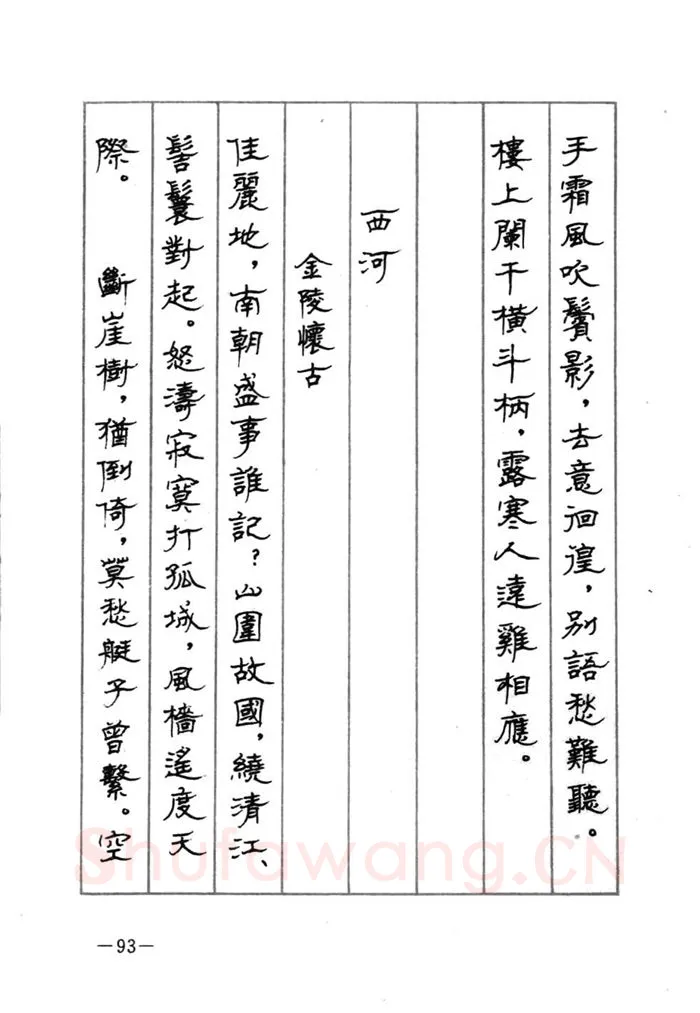 手霜風吹鬢影，去意徊徨，別語愁難聽。
樓上闌干橫斗柄，露寒人遠雞相應。
西河
金陵懷古
佳麗地，南朝盛事誰記？山圍故國，繞清江、
髻鬟對起。怒濤寂寞打孤城，風檣遙度天
際。　斷崖樹，猶倒倚，莫愁艇子曾繫。空
Shufawang.CN
—93—